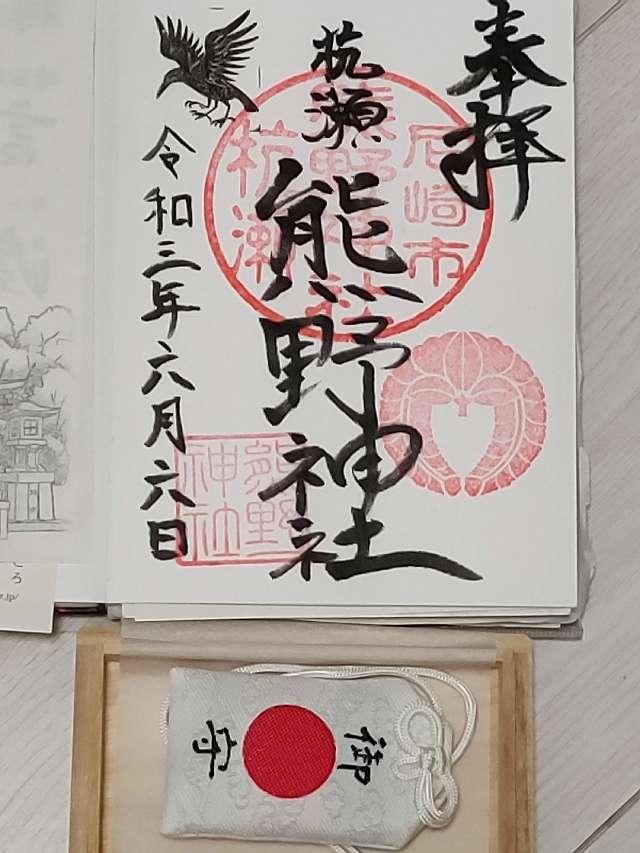 奉拝
杭瀬
熊野神社
令和三年六月六日
尼崎市
熊野神社
杭瀬
熊野
神社
御守
ころ
.jp/